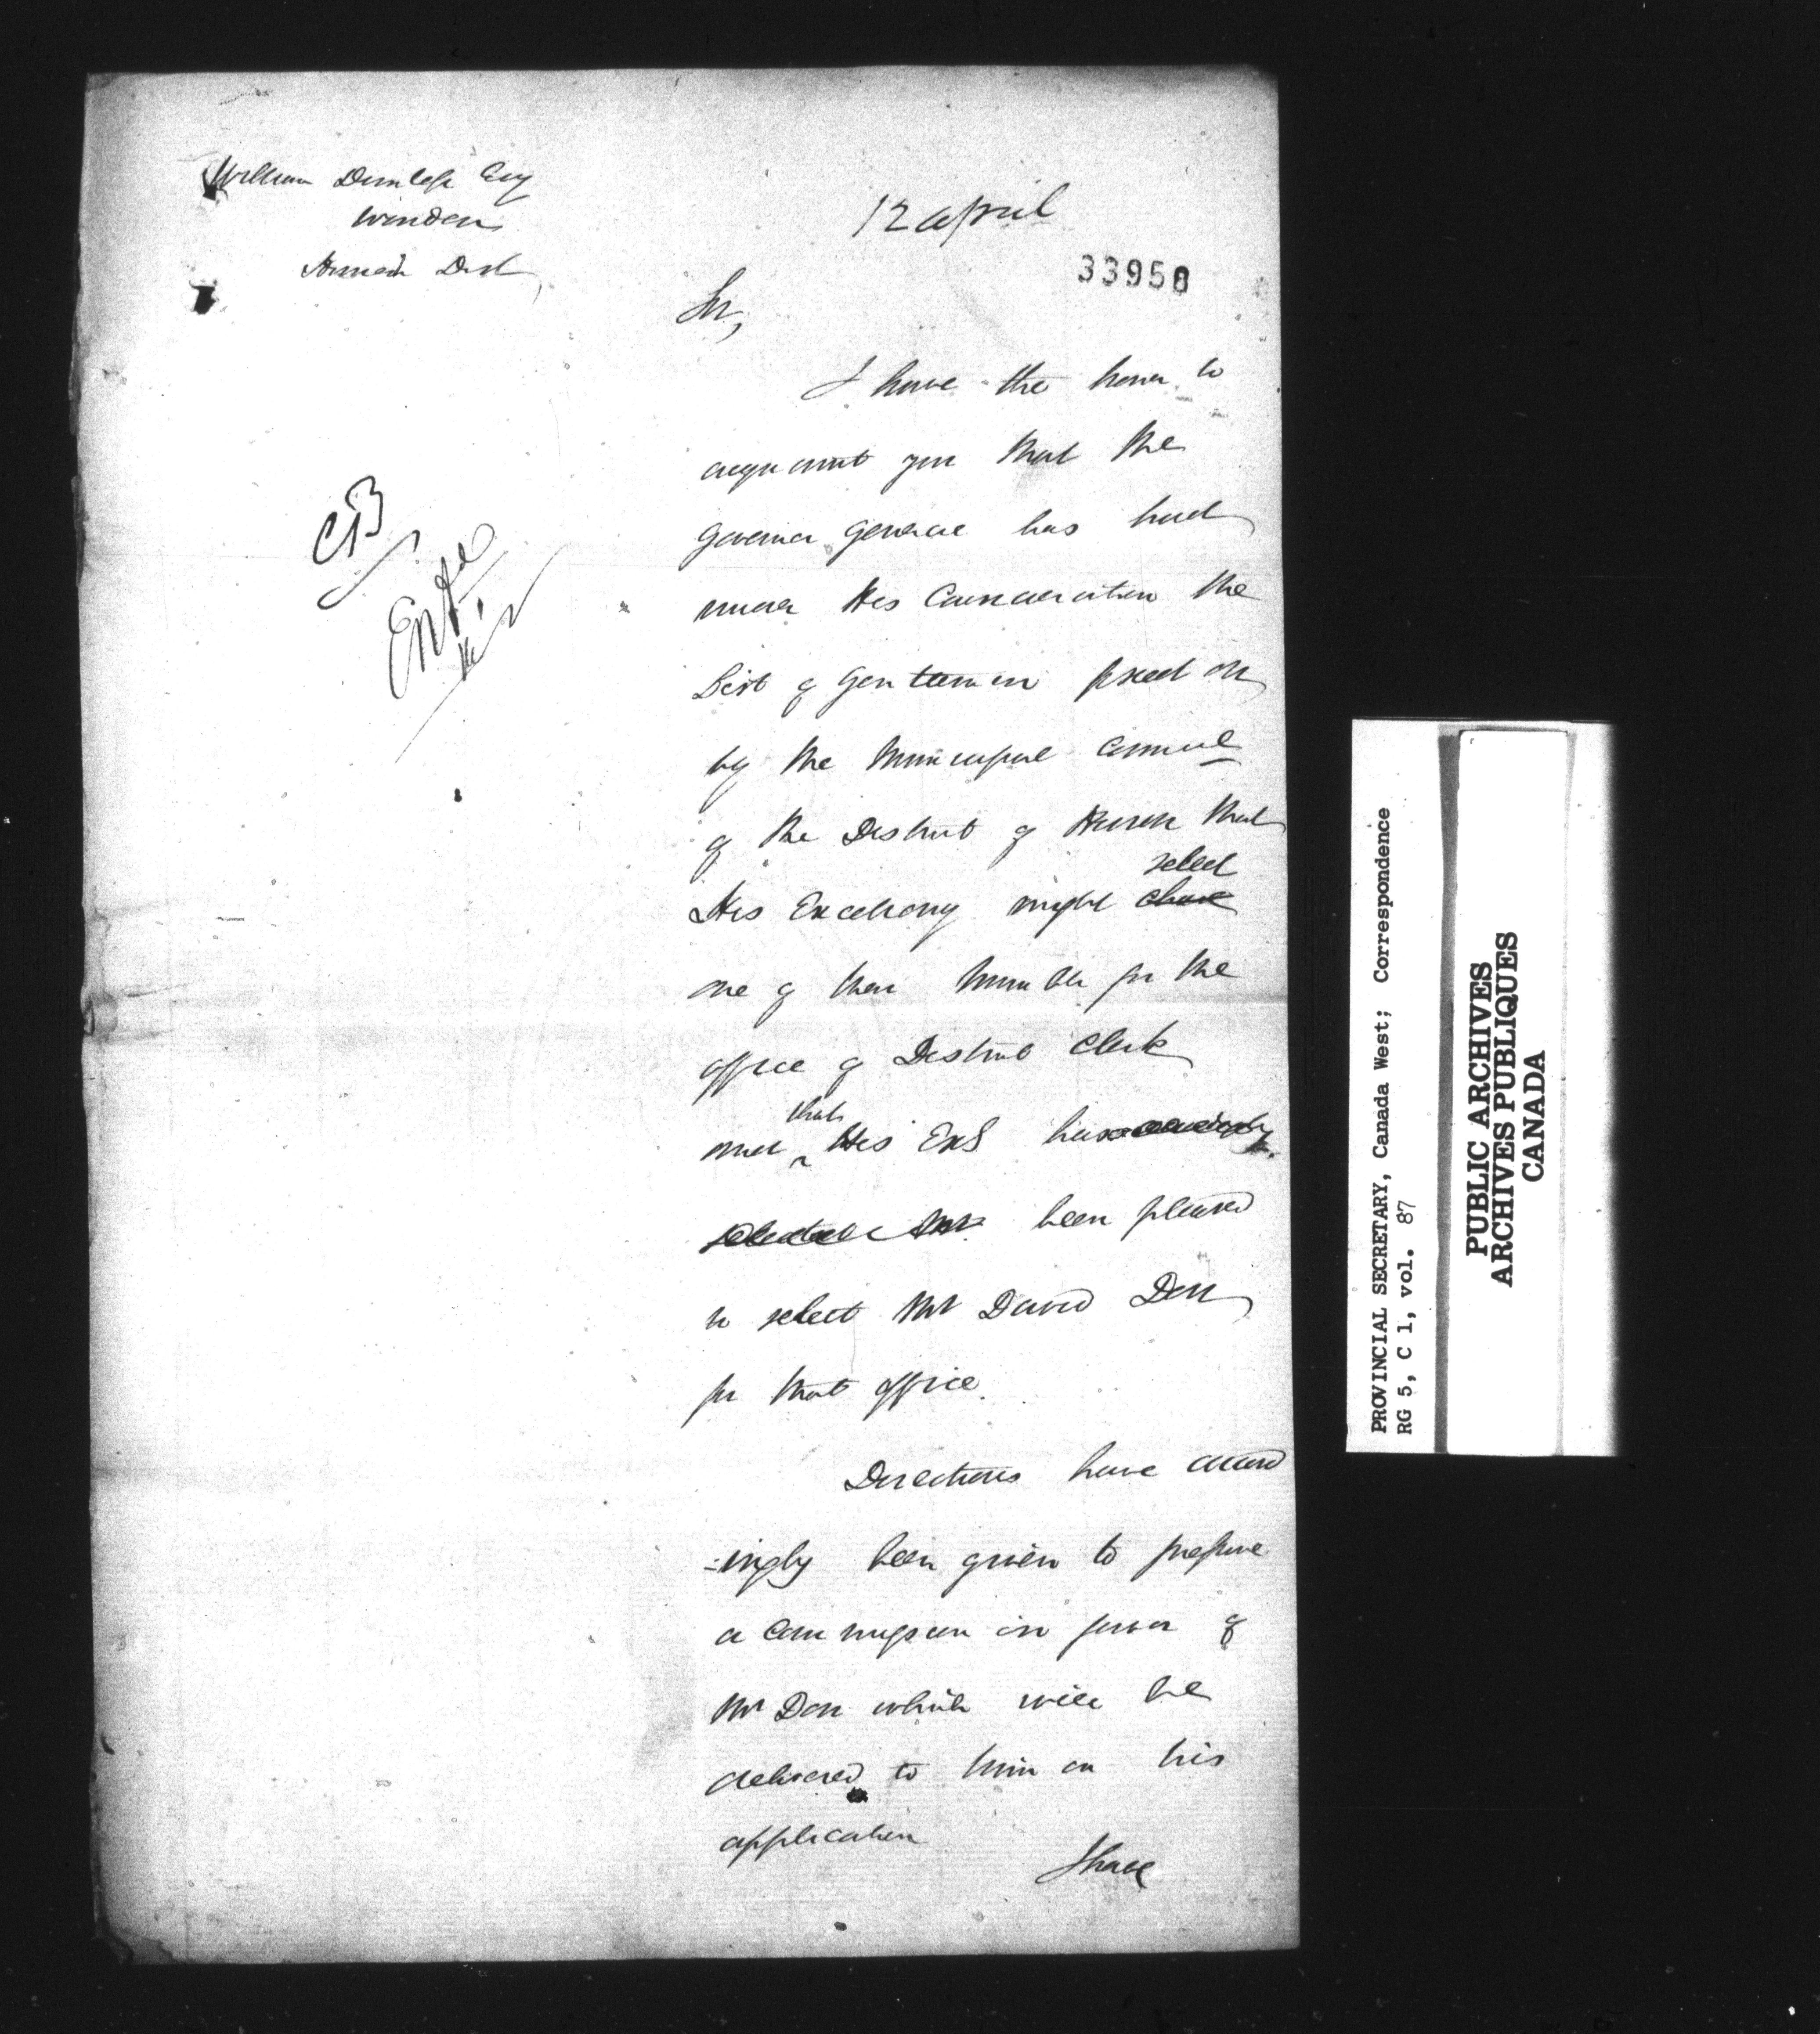 William Dunlop Esq
Warden
Huron Dist
12 April
33950
Sir,
I have the honor to
acquaint you that the
Governor General has had
under His Consideration the
List of Gentlemen fixed on
by the Municipal Council
of the District of Huron that
select
His Excellency might chuse
one of their number for the
office of District Clerk
that
and His Exc has
selected Mr been pleased
to select Mr David Don
for that office.
Directions have accord
-ingly been given to prepare
a Commission in favor of
Mr Don which will be
delivered to him on his
application
I have
CB
Entd
PROVINCIAL SECRETARY, Canada West; Correspondence
RG 5, C 1, vol. 87
PUBLIC ARCHIVES
ARCHIVES PUBLIQUES
CANADA